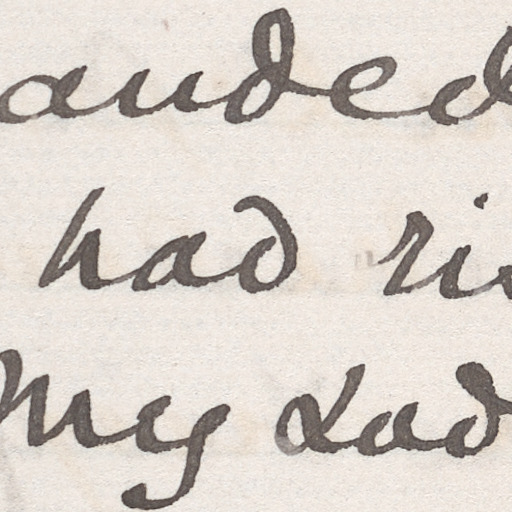 anded
had ri
my Lad